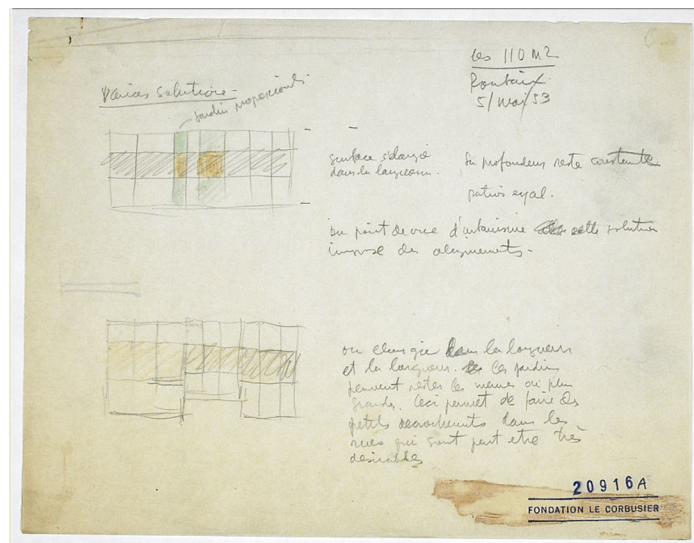 les 110 m2
Roubaix
5/mai 53
Varices solutions -
jardin proportionnels
surface s'élargie
dans la largeur.
la profondeur reste constante
patios egal.
Du point de vue d'urbanisme cette solution
impose des alignements -
on change dans la longueur
et la largeur. les jardins
peuvent rester les mêmes ou plus
grands. Ceci permet de faire des
petits decrochements dans les
rues qui sont peut etre très
desirables
20916A
FONDATION LE CORBUSIER